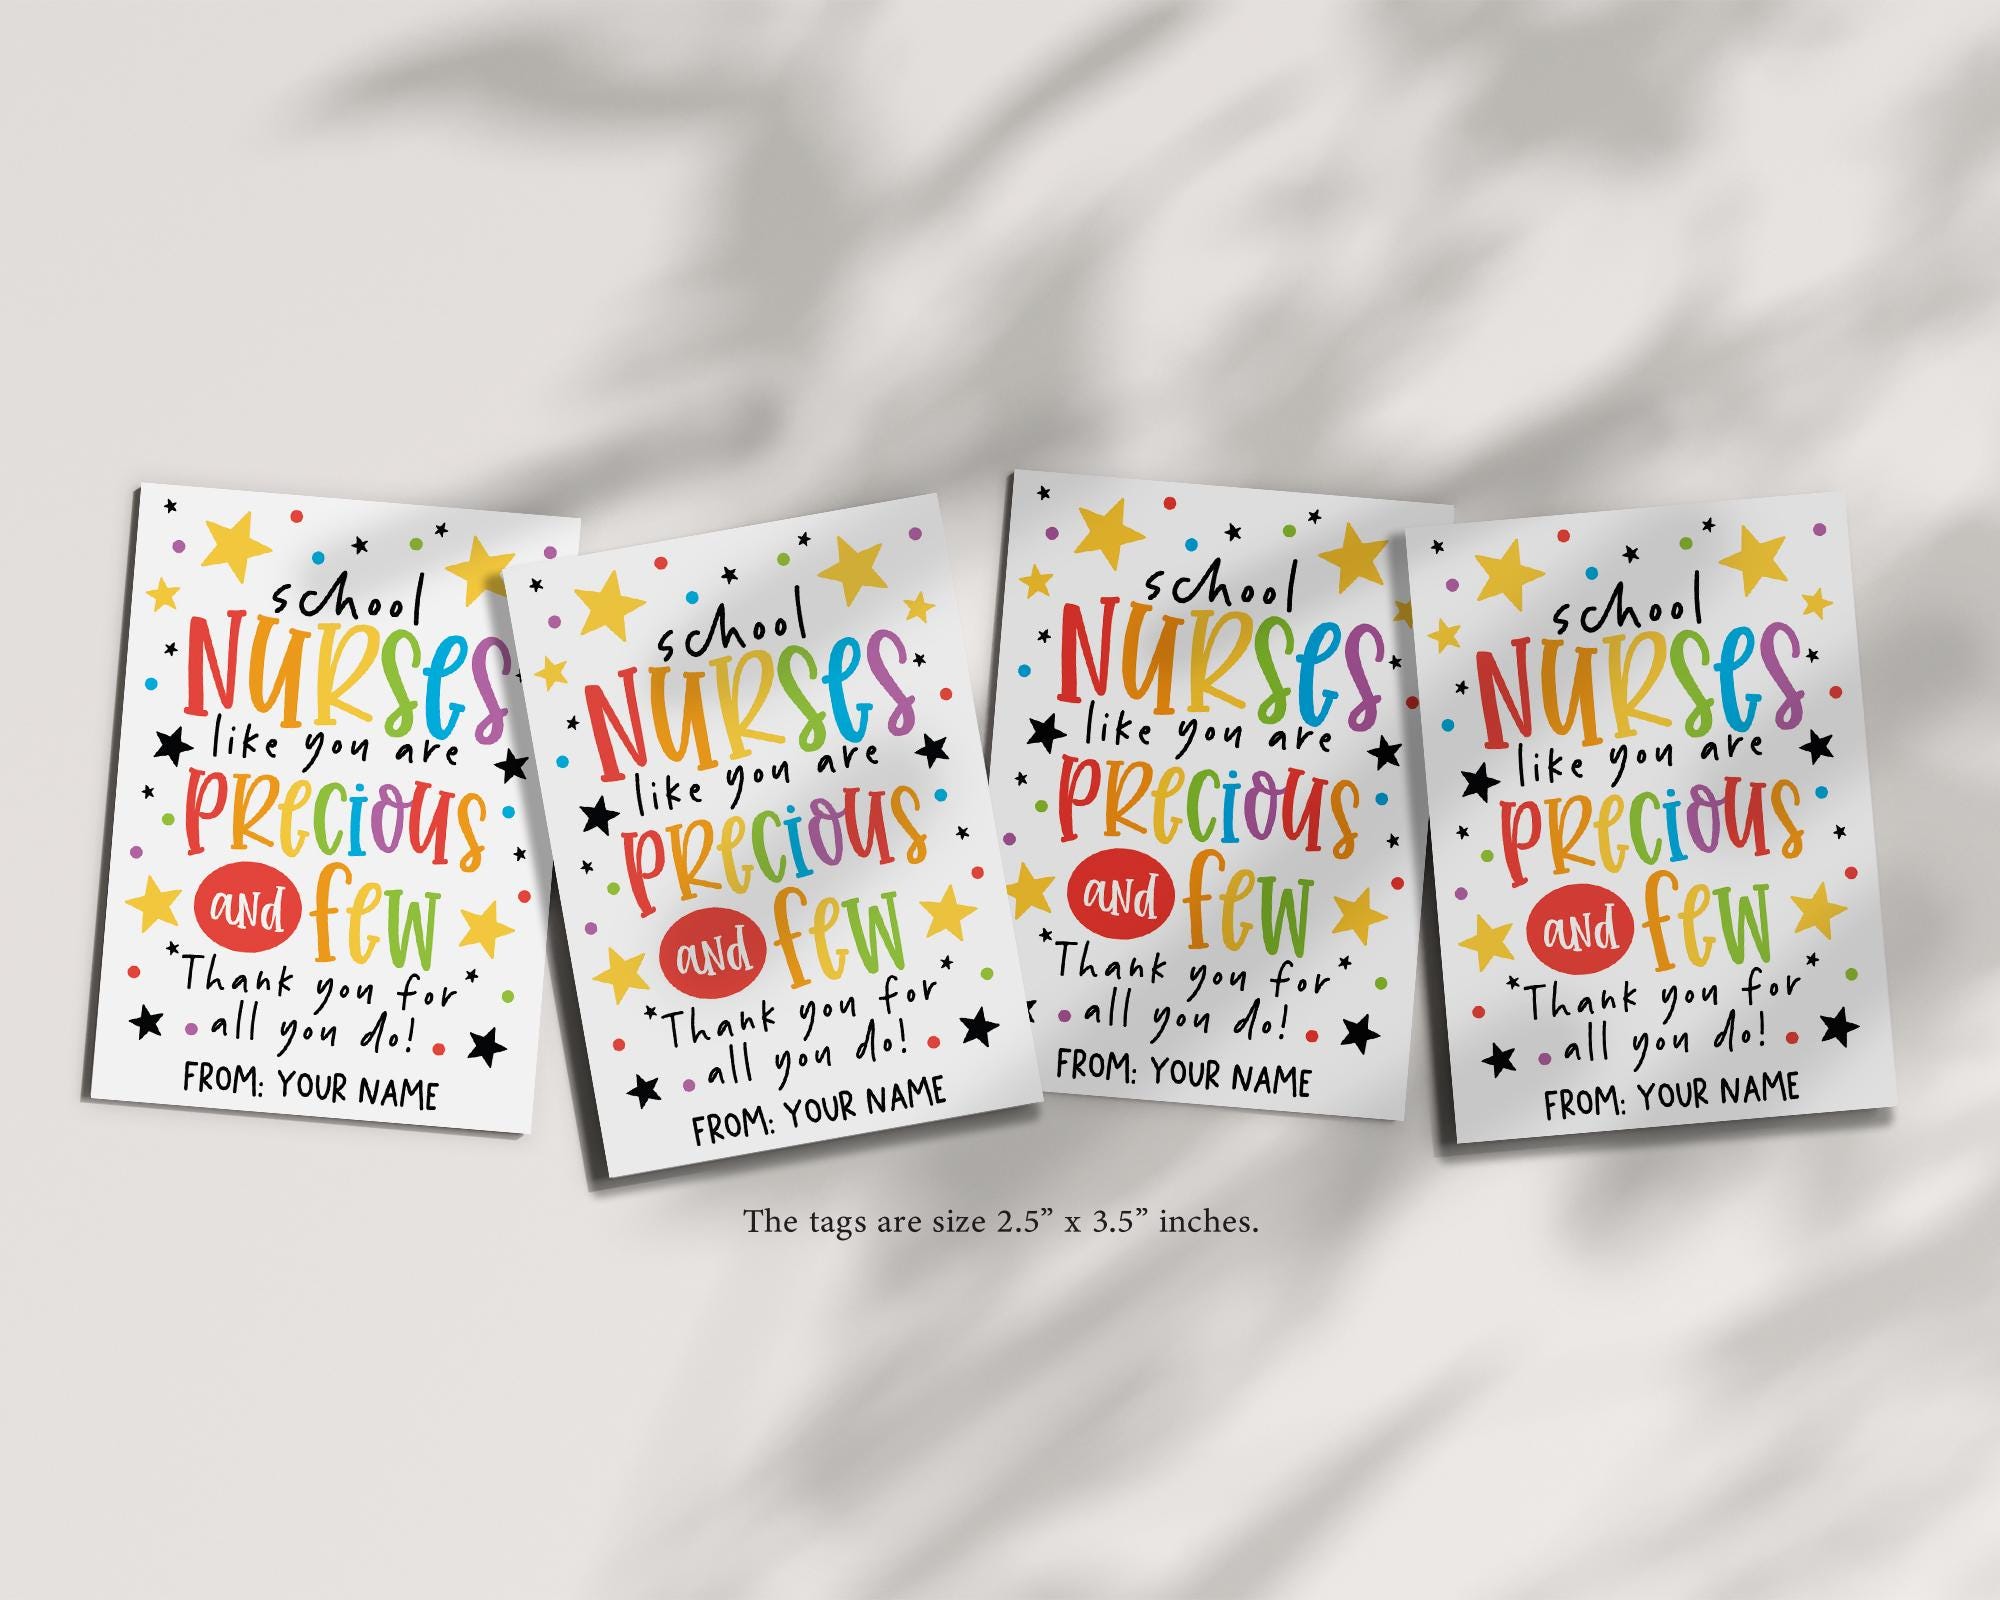 school
NURSES
like you are
PRECIOUS
and few
Thank you for
all you do!
FROM: YOUR NAME
school
NURSES
like you are
PRECIOUS
and few
Thank you for
all you do!
FROM: YOUR NAME
school
NURSES
like you are
PRECIOUS
and few
Thank you for
all you do!
FROM: YOUR NAME
school
NURSES
like you are
PRECIOUS
and few
Thank you for
all you do!
FROM: YOUR NAME
The tags are size 2.5” x 3.5” inches.